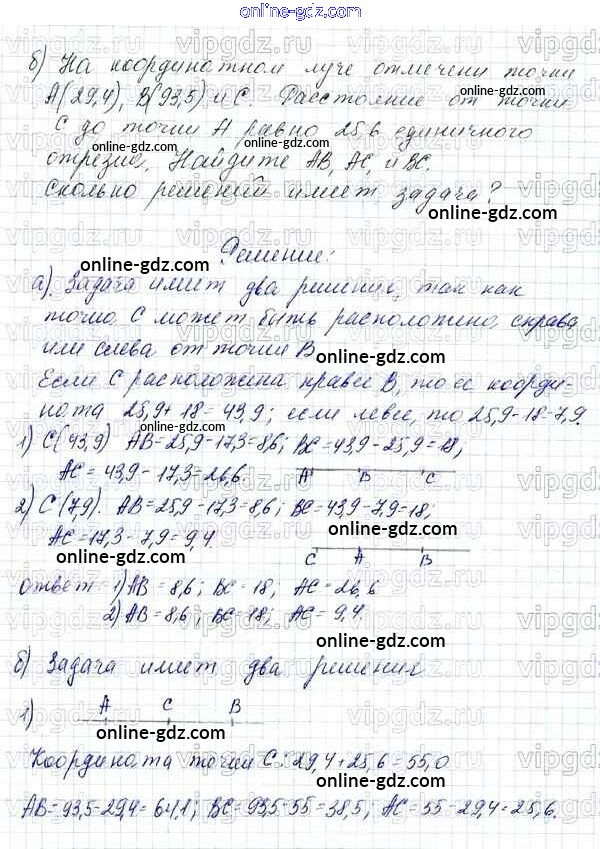 online-gdz.com
б) На координатном луче отмечени точки
А(29,4), В(93,5) и С. Расстояние от точки
С до точки А равно 25,6 единичного
отрезка. Найдите АВ, АС, и ВС.
Сколько решений имеет задача?
online-gdz.com
Решение:
online-gdz.com
а). Задача имеет два решения, так как
точка С может быть расположена, справа
или слева от точки В
online-gdz.com
Если С расположена правее В, то ее коорди-
ната 25,9 + 18 = 43,9; если левее, то 25,9-18=7,9.
online-gdz.com
1) С(43,9) АВ=25,9-17,3=8,6; ВС=43,9-25,9=18,
АС = 43,9-17,3=26,6.
online-gdz.com
А В С
2) С (7,9). АВ=25,9-17,3=8,6; ВС=43,9-7,9=18;
АС=17,3-7,9=9,4.
online-gdz.com
online-gdz.com
С А В
ответ 1) АВ = 8,6; ВС = 18; АС = 26,6
2) АВ = 8,6; ВС = 18; АС = 9,4.
online-gdz.com
б) Задача имеет два решения
1) А С В
online-gdz.com
Координата точки С: 29,4+25,6=55,0
online-gdz.com
АВ=93,5-29,4=64,1; ВС=93,5-55=38,5; АС=55-29,4=25,6.
online-gdz.com